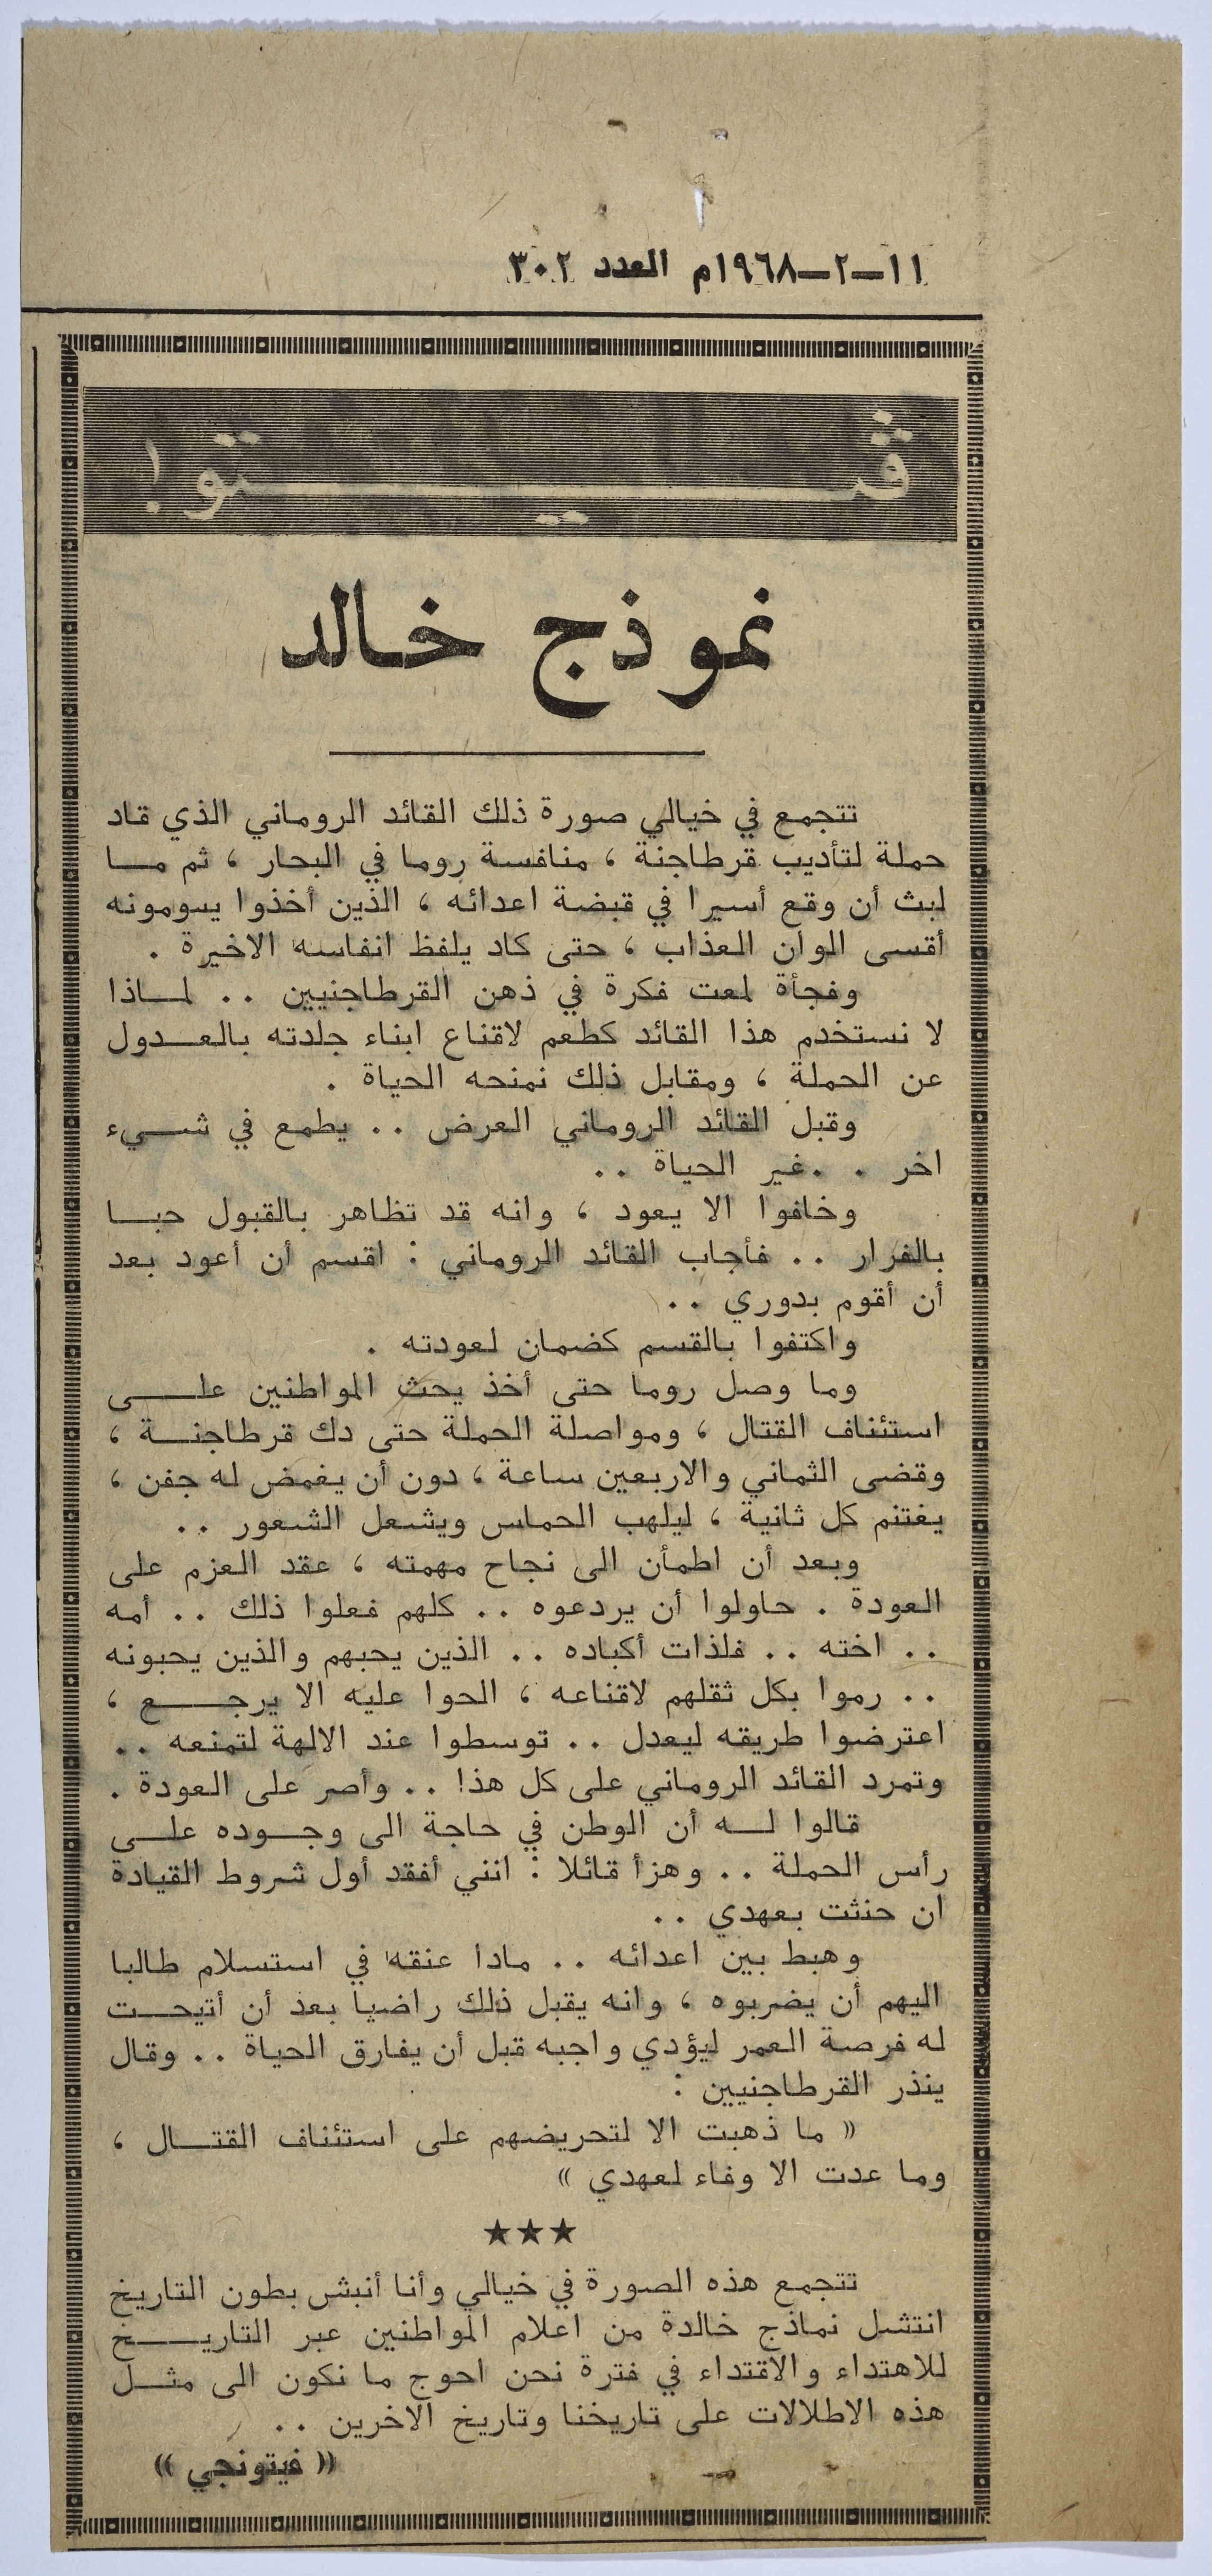 ١١-٢-١٩٦٨م العدد ٣٠٢
ڤيتو!
نموذج خالد
تتجمع في خيالي صورة ذلك القائد الروماني الذي قاد
حملة لتأديب قرطاجنة ، منافسة روما في البحار ، ثم ما
لبث أن وقع أسيرا في قبضة اعدائه ، الذين أخذوا يسومونه
أقسى الوان العذاب ، حتى كاد يلفظ انفاسه الاخيرة .
وفجأة لمعت فكرة في ذهن القرطاجنيين .. لماذا
لا نستخدم هذا القائد كطعم لاقناع ابناء جلدته بالعدول
عن الحملة ، ومقابل ذلك نمنحه الحياة .
وقبل القائد الروماني العرض .. يطمع في شيء
اخر . . غير الحياة ..
وخافوا الا يعود ، وانه قد تظاهر بالقبول حبا
بالفرار .. فأجاب القائد الروماني : اقسم أن أعود بعد
أن أقوم بدوري ..
واكتفوا بالقسم كضمان لعودته .
وما وصل روما حتى أخذ يحث المواطنين على
استئناف القتال ، ومواصلة الحملة حتى دك قرطاجنة ،
وقضى الثماني والاربعين ساعة ، دون أن يغمض له جفن ،
يغتنم كل ثانية ، ليلهب الحماس ويشعل الشعور ..
وبعد أن اطمأن الى نجاح مهمته ، عقد العزم على
العودة . حاولوا أن يردعوه .. كلهم فعلوا ذلك .. أمه
.. اخته .. فلذات أكباده .. الذين يحبهم والذين يحبونه
.. رموا بكل ثقلهم لاقناعه ، الحوا عليه الا يرجع ،
اعترضوا طريقه ليعدل .. توسطوا عند الالهة لتمنعه ..
وتمرد القائد الروماني على كل هذا .. وأصر على العودة .
قالوا له أن الوطن في حاجة الى وجوده على
رأس الحملة .. وهزأ قائلا : انني أفقد أول شروط القيادة
ان حنثت بعهدي ..
وهبط بين اعدائه .. مادا عنقه في استسلام طالبا
اليهم أن يضربوه ، وانه يقبل ذلك راضيا بعد أن أتيحت
له فرصة العمر ليؤدي واجبه قبل أن يفارق الحياة .. وقال
ينذر القرطاجنيين :
« ما ذهبت الا لتحريضهم على استئناف القتال ،
وما عدت الا وفاء لعهدي »
★★★
تتجمع هذه الصورة في خيالي وأنا أنبش بطون التاريخ
انتشل نماذج خالدة من اعلام المواطنين عبر التاريخ
للاهتداء والاقتداء في فترة نحن احوج ما نكون الى مثل
هذه الاطلالات على تاريخنا وتاريخ الاخرين ..
« فيتونجي »